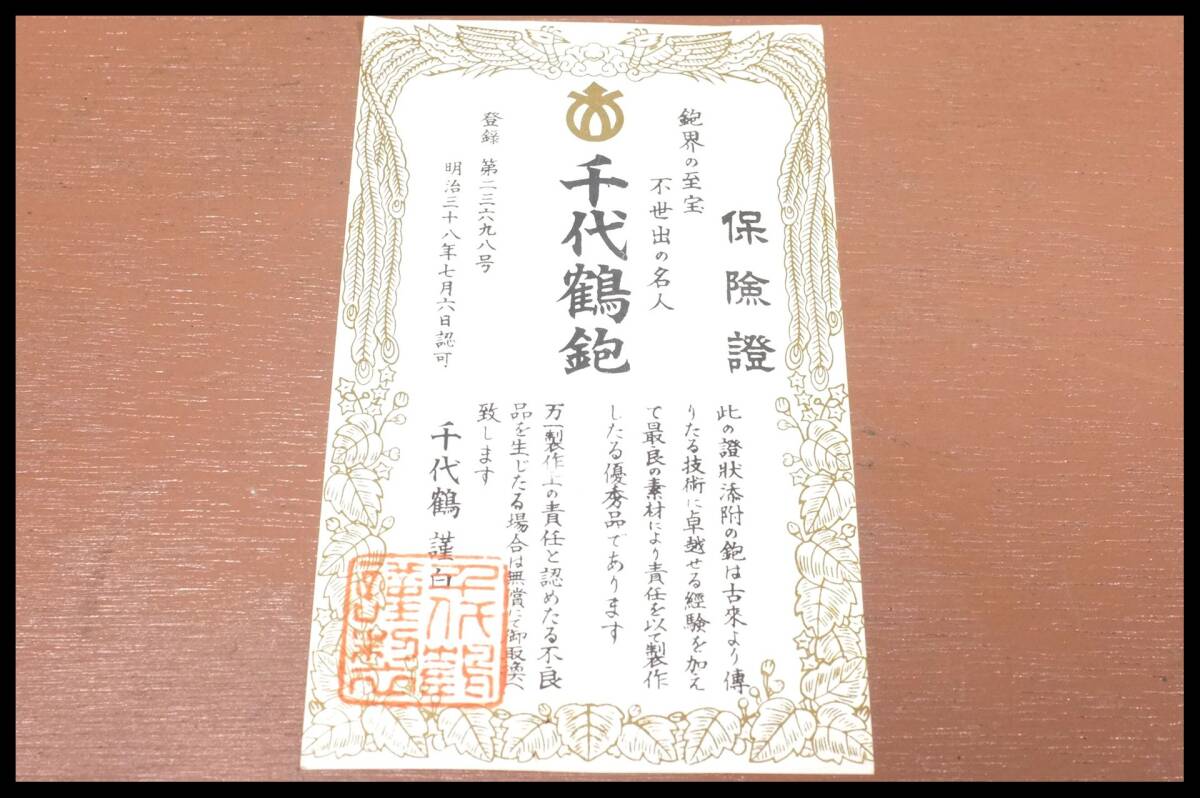 保険證
鉋界の至宝
不世出の名人
千代鶴鉋
登録 第二三六九八号
明治三十八年七月六日認可
此の證狀添附の鉋は古來より傳
りたる技術に卓越せる經驗を加え
て最良の素材により責任を以て製作
したる優秀品であります
万一製作上の責任と認めたる不良
品を生じたる場合は無償にて御取奐へ
致します
千代鶴 謹白
千代鶴
謹製